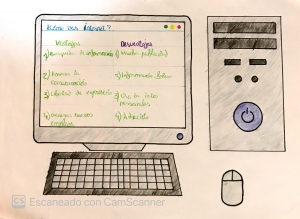 ¿Cómo usas Internet?
Ventajas
Desventajas
1) Búsqueda de información
1) Mucha publicidad
2)
comunicación
2) Información falsa
3) Libertad de expresión
3) de datos
personales
4) nuevos
empleos
4) Adicción
CS Escaneado con CamScanner